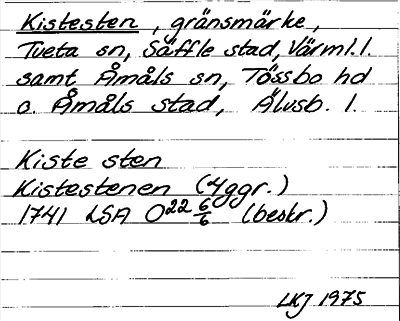 Kistesten, gränsmärke,
Tveta sn, Säffle stad, Värml. l.
samt Åmåls sn, Tössbo hd
o. Åmåls stad, Älvsb. l.
Kiste sten
Kistestenen (4ggr.)
1741 LSA O22 6/6 (beskr.)
LKJ 1975